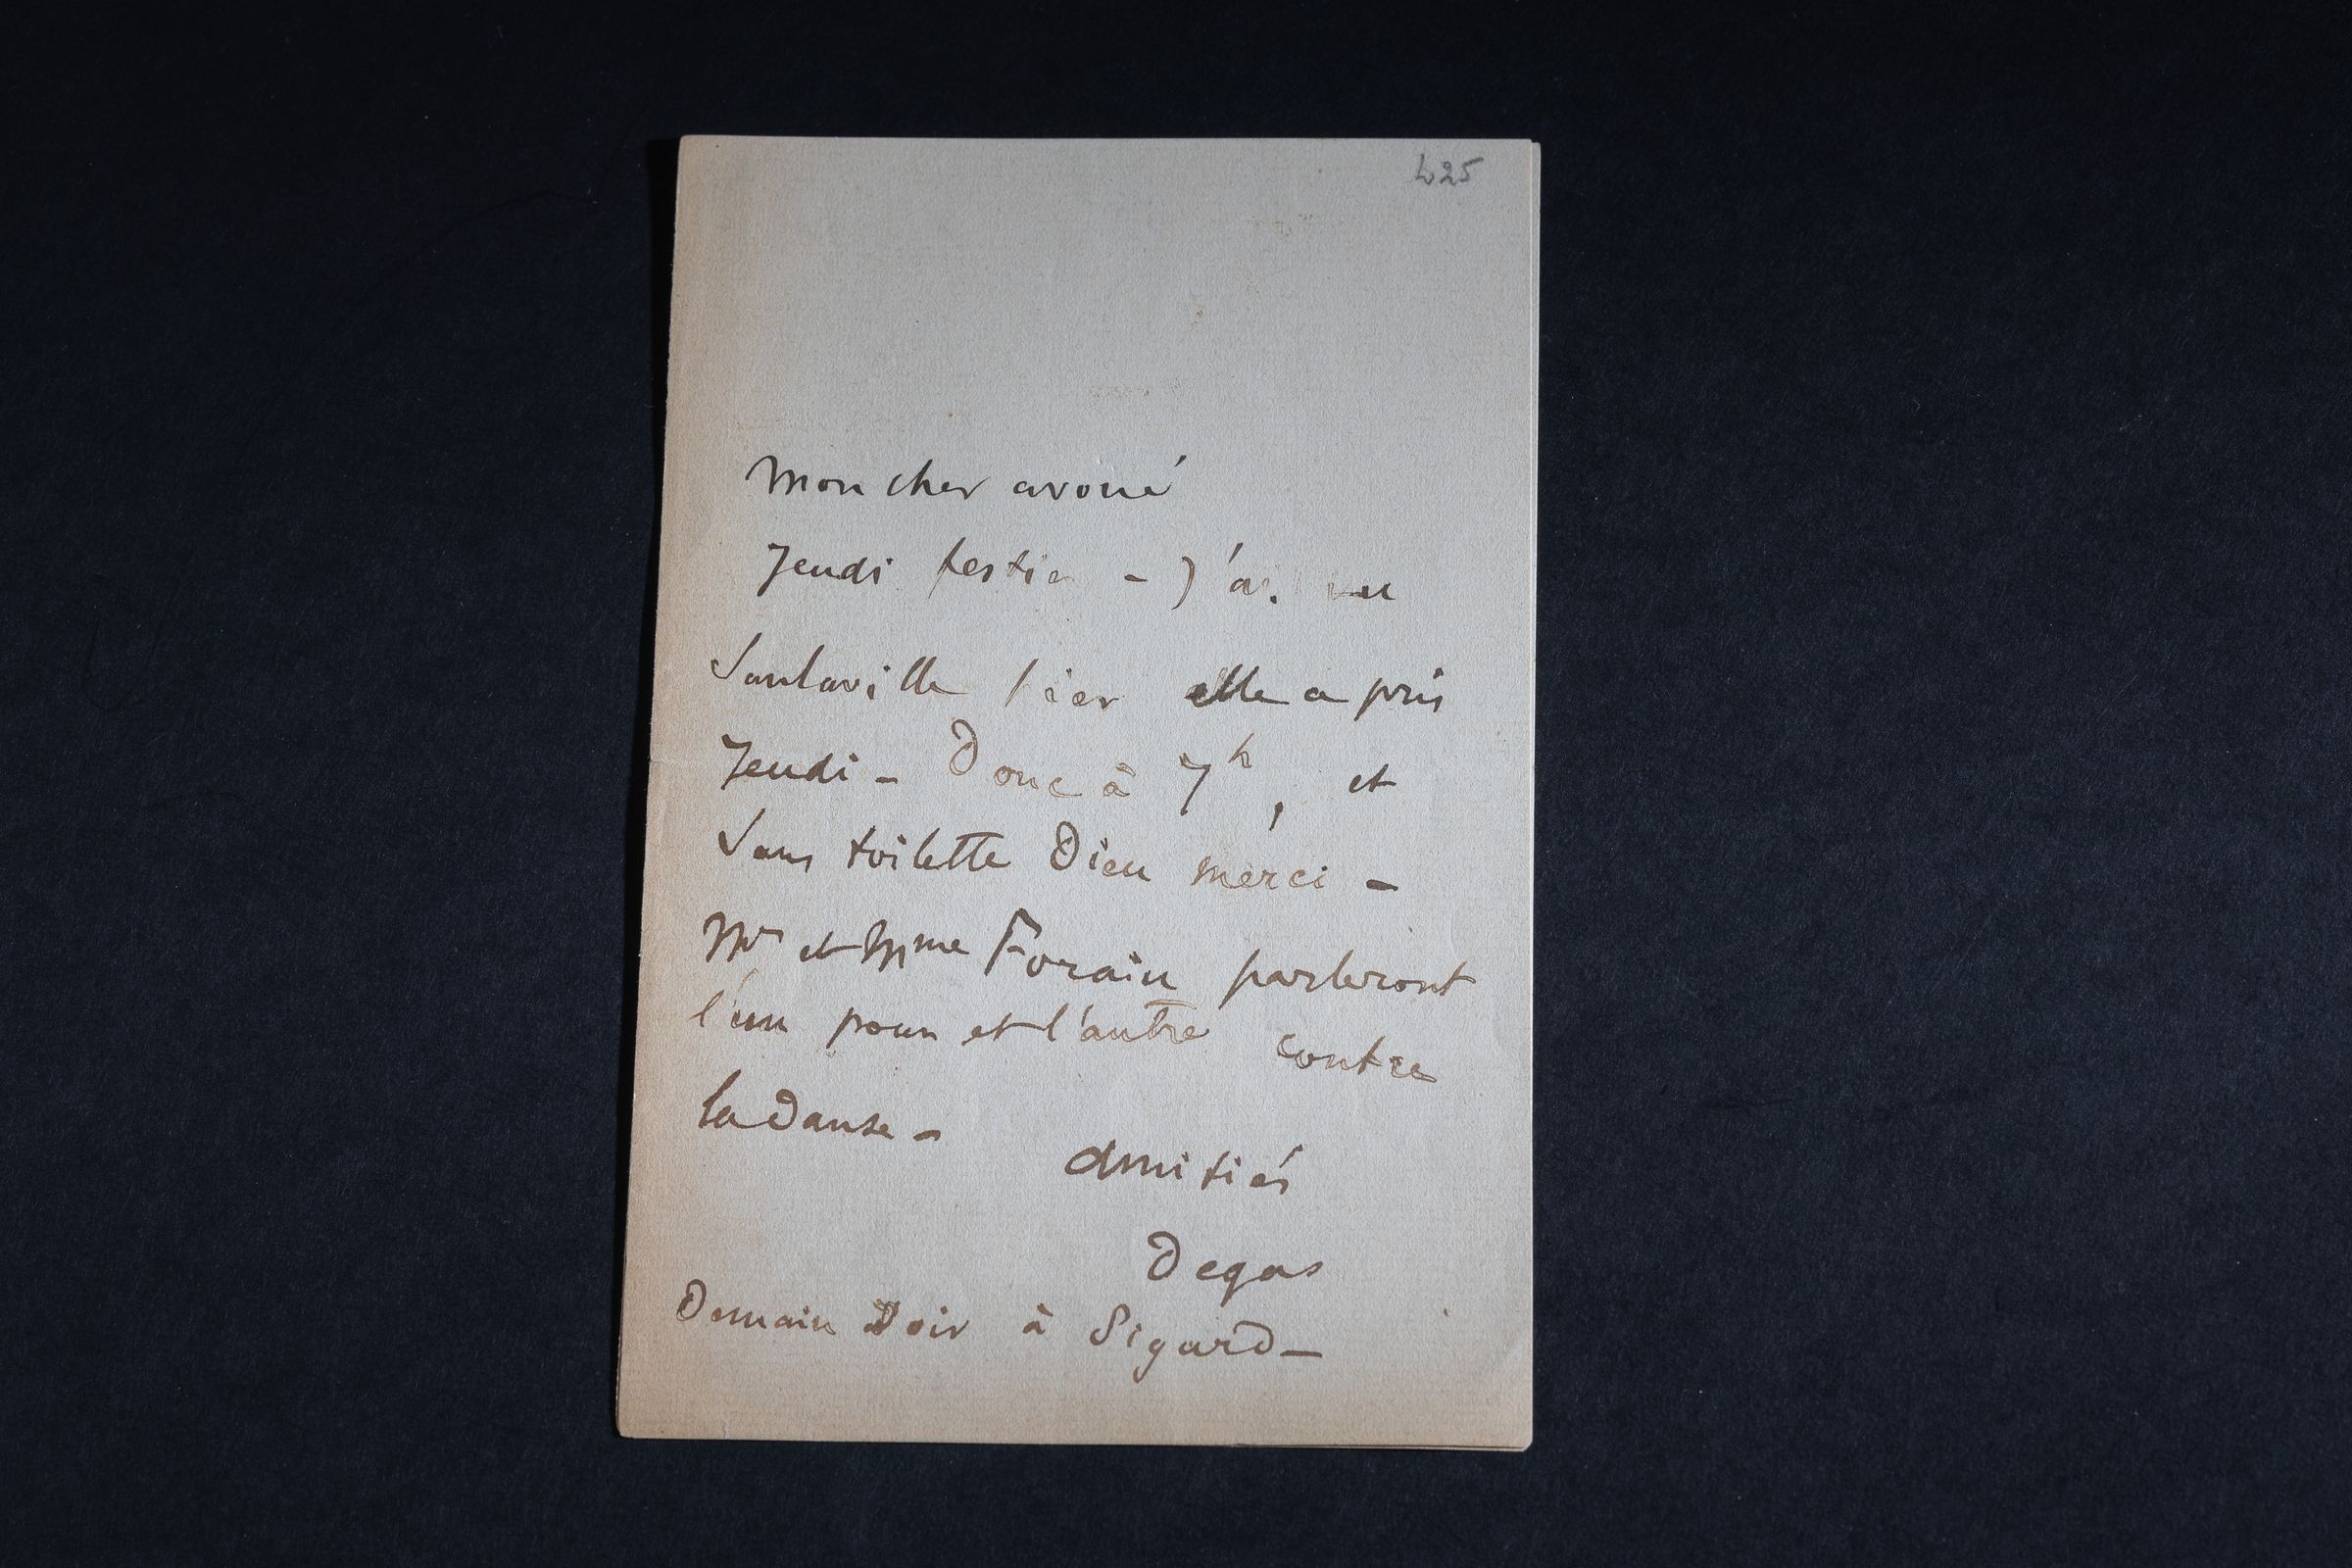 425
Mon cher avoué
Jeudi festin - J'ai vu
Sanlaville hier elle a pris
Jeudi - Donc à 7h, et
Sans toilette Dieu merci -
Mr et Mme Forain parleront
l'un pour et l'autre contre
la Danse -
Amitiés
Degas
Demain Soir à Sigurd -